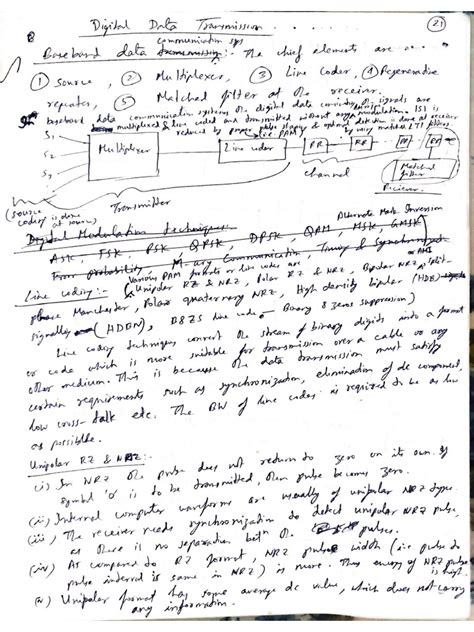 Digital Data Transmission
(21)
communication sys
Baseband data transmission: The chief elements are
(1) Source, (2) Multiplexer, (3) Line Coder, (4) Regenerative
repeater, (5) Matched filter at the receiver.
baseband data communication systems the digital data signals are
multiplexed & line coded and transmitted without any modulation. ISI is
reduced by pulse shaping & optimal detection is done at receiver
by using matched filters
S1
S2
S3
Multiplexer
Line coder
RR
RR
RR
RR
Matched filter
channel
Receiver
(source coding is done at source)
Transmitter
Digital Modulation techniques
Alternate Mark Inversion
ASK, FSK, PSK, QPSK, DPSK, QAM, MSK, GMSK
Error probability M-ary Communication Timing & Synchronization
Various PAM formats or line codes are
Line coding:- (Unipolar RZ & NRZ, Polar RZ & NRZ, Bipolar NRZ, Split-
phase Manchester, Polar quaternary NRZ, High density bipolar (HDB)
signalling (HDBN), B8ZS line code - Binary 8 zeros suppression)
Line coding techniques convert the stream of binary digits into a format
or code which is more suitable for transmission over a cable or any
other medium. This is because the data transmission must satisfy
certain requirements such as synchronization, elimination of dc component,
low cross-talk etc. The BW of line codes is required to be as low
as possible.
Unipolar RZ & NRZ:-
(i) In NRZ the pulse does not return to zero on its own. If
symbol '0' is to be transmitted, then pulse becomes zero.
(ii) Internal computer waveforms are usually of unipolar NRZ type.
(iii) The receiver needs synchronization to detect unipolar NRZ pulse,
as there is no separation betn the pulses.
(iv) As compared to RZ format, NRZ pulse width (i.e pulse to
pulse interval is same in NRZ) is more. Thus energy of NRZ pulse
is high.
(v) Unipolar format has some average dc value, which does not carry
any information.